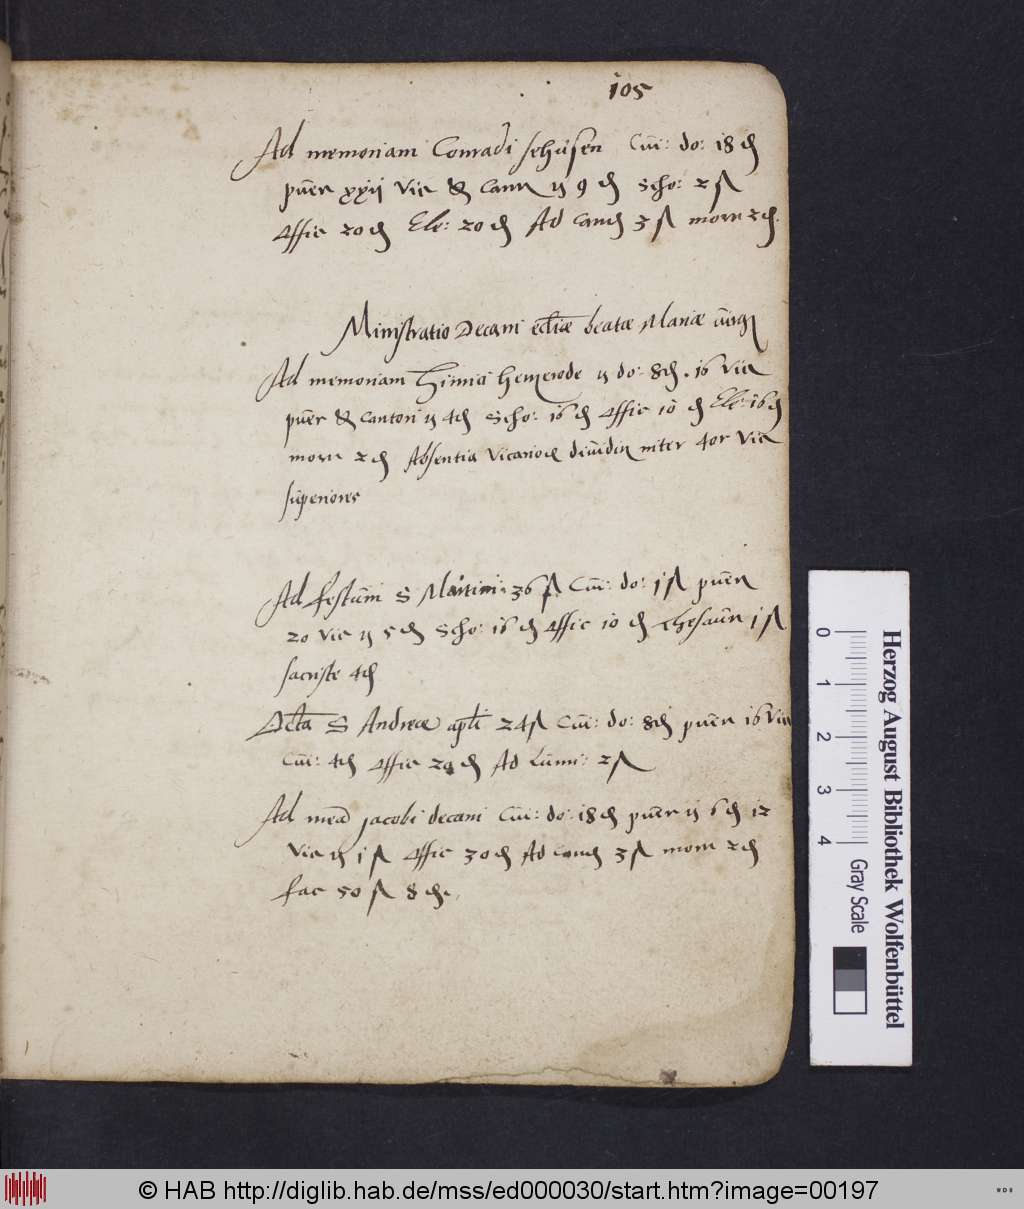 105
Ad memoriam Conradi sehusen Cui: do: 18 ₰
puer xxij Vic & Cant ij 9 ₰ Scho: 2 ß
Offic 20 ₰ Ele: 20 ₰ Ad Cand 3 ß morn 2 ₰.
Ministratio Decani eccliæ beatæ Mariæ virg
Ad memoriam Hinrici hemerode ij do: 8 ₰. 16 Vic
puer & Cantori ij 4 ₰ Scho: 16 ₰ Offic 10 ₰ Ele: 16 ₰
morn 2 ₰ Absentia Vicarior dividit inter 4or Vic
superiores
Ad festum S Martini 36 ß Cui: do: 1 ß puer
20 Vic ij 5 ₰ Scho: 16 ₰ Offic 10 ₰ Thesaur 1 ß
sacriste 4 ₰
S Andreæ apli 24 ß Cui: do: 8 ₰ puer 16 Vic
Cui: 4 ₰ Offic ₰ Ad Lumi: 2 ß
Ad mea Jacobi decani Cui: do: 18 ₰ puer ij 6 ₰ 12
Vic ij 1 ß Offic 30 ₰ Ad Cand 3 ß morn 2 ₰
fac 50 ß 8 ₰.
Herzog August Bibliothek Wolfenbüttel
0 1 2 3 4
Gray Scale
© HAB http://diglib.hab.de/mss/ed000030/start.htm?image=00197